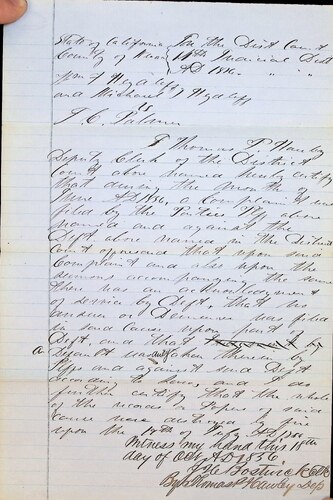 State of California } In the Dist Court
County of 14th Judicial Dist
AD 1856 " "
Wm T
and Michael
vs
T. C.
I Thomas P Hawley
Deputy Clerk of the District
Court above named hereby certify
that during the month of
June AD 1856, a Complaint was
filed by the Parties Plff above
named and against the
Deft above named in the District
Court aforesaid that upon said
Complaint and also upon the
summons accompanying the same
there was an acknowledgment
of service by Deft, that no
answer or Demurrer was filed
in said cause upon part of
Deft and that
a Default was taken therein by
Plffs and against said Deft
according to law and I do
further certify that the whole
of the records or papers of said
cause were destroyed by fire
upon the 19th of July AD 1856
Witness my hand this 18th
day of Oct AD 1856
Bostwick Clk
By Thomas P Hawley Dep